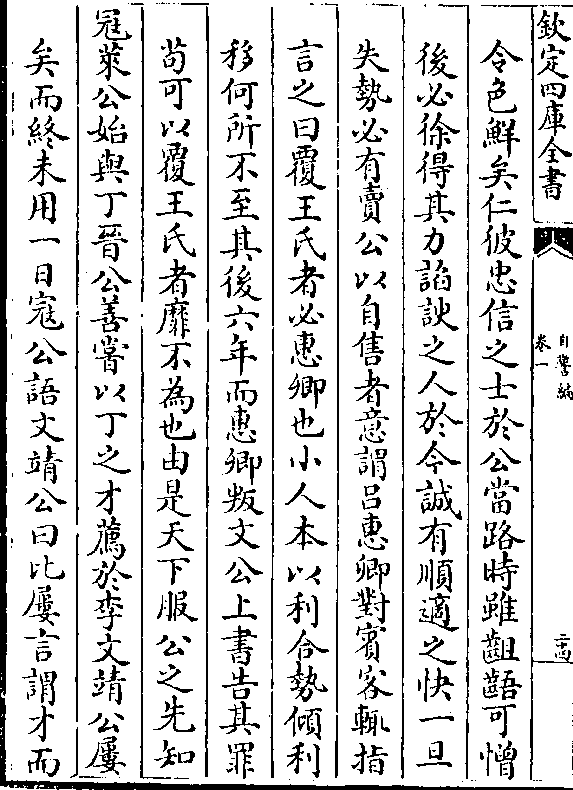 欽定四庫全書
自警編
卷一
二十四
令色鮮矣仁彼忠信之士於公當路時雖齟齬可憎
後必徐得其力諂諛之人於今誠有順適之快一旦
失勢必有賣公以自售者意謂吕惠卿對賔客輙指
言之曰覆王氏者必惠卿也小人本以利合勢傾利
移何所不至其後六年而惠卿叛文公上書告其罪
茍可以覆王氏者靡不為也由是天下服公之先知
冦萊公始與丁晉公善嘗以丁之才薦於李文靖公屢
矣而終未用一日冦公語文靖公曰比屢言謂才而